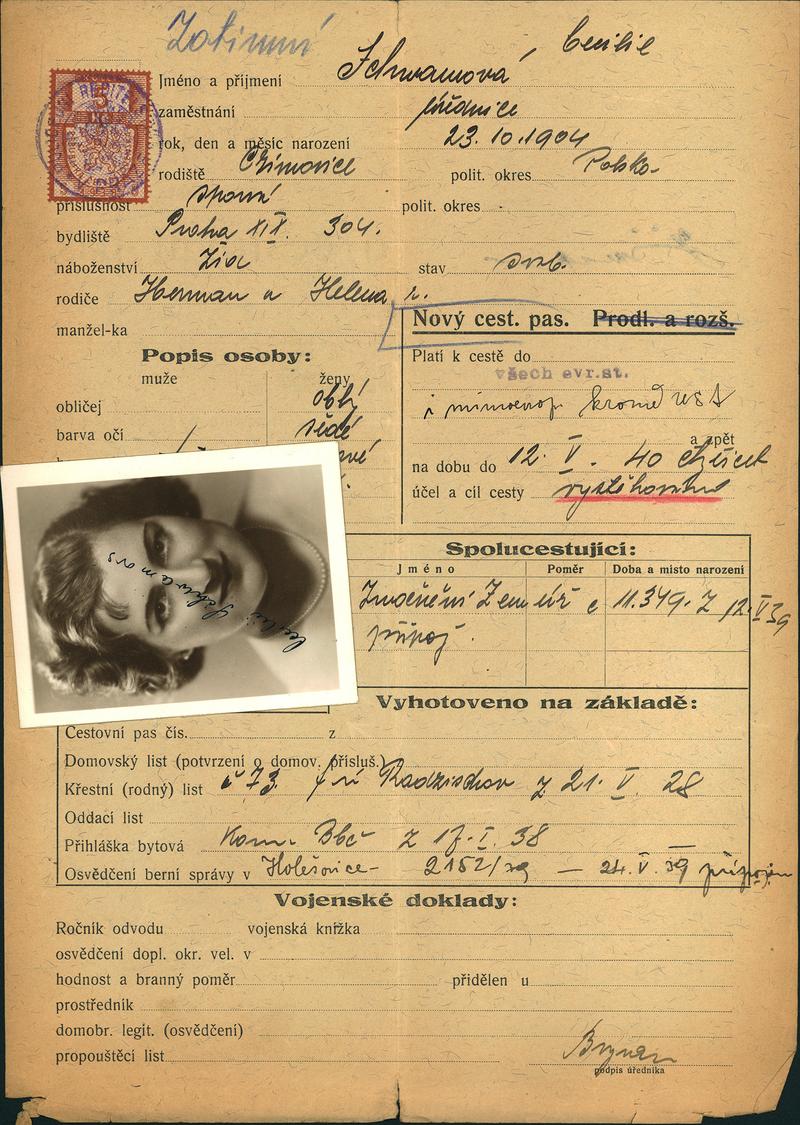 Schwamová Cecilie
Jméno a příjmení
zaměstnání úřednice
rok, den a měsíc narození 23.10.1904
rodiště polit. okres Polsko-
příslušnost sporná polit. okres -
bydliště Praha XIX. 304.
náboženství stav svob.
rodiče Herman a Helena r.
manžel-ka
Nový cest. pas. Prodl. a rozš.
Popis osoby:
muže ženy
obličej oblý
barva očí šedé
Platí k cestě do
všech evr. st.
i mimoevrop. kromě USA
a zpět
na dobu do 12. V. 40
účel a cíl cesty vystěhování
Cecilie Schwamová
Spolucestující:
Jméno Poměr Doba a místo narození
11.349. Z 12. V 39
připoj.
Vyhotoveno na základě:
Cestovní pas čís. z
Domovský list (potvrzení o domov. přísluš.)
Křestní (rodný) list č 73 z 21. V. 28
Oddací list
Přihláška bytová z 17. I. 38
Osvědčení berní správy v Holešovice - 2152/39 — 24. V. 39 připojeno
Vojenské doklady:
Ročník odvodu vojenská knížka
osvědčení dopl. okr. vel. v
hodnost a branný poměr přidělen u
prostředník
domobr. legit. (osvědčení)
propouštěcí list
podpis úředníka